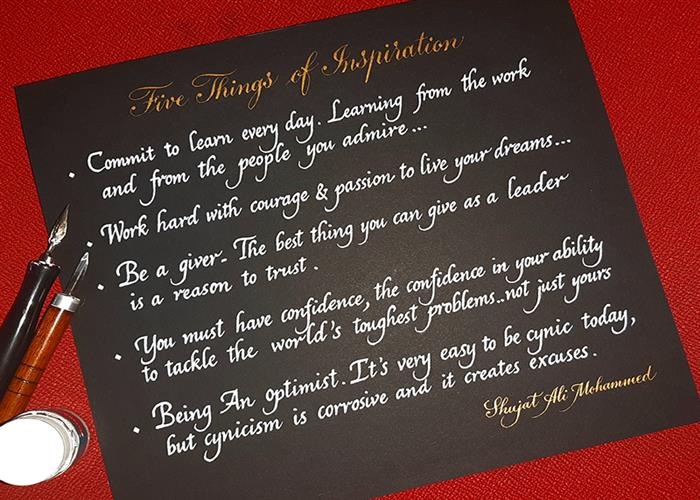 Five Things of Inspiration
• Commit to learn every day. Learning from the work
and from the people you admire...
• Work hard with courage & passion to live your dreams...
• Be a giver- The best thing you can give as a leader
is a reason to trust.
• You must have confidence, the confidence in your ability
to tackle the world's toughest problems..not just yours
• Being An optimist. It's very easy to be cynic today,
but cynicism is corrosive and it creates excuses.
Shujat Ali Mohammed